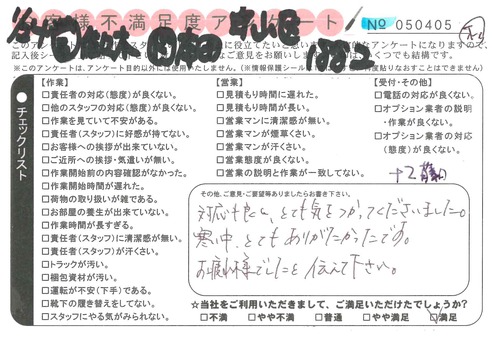 お客様不満足度アンケート
№ 050405
【作業】
□責任者の対応(態度)が良くない。
□他のスタッフの対応(態度)が良くない。
□作業を見ていて不安がある。
□責任者(スタッフ)に好感が持てない。
□お客様への挨拶が出来ていない。
□ご近所への挨拶・気遣いが無い。
□作業開始前の内容確認がなかった。
□作業開始時間が遅れた。
□荷物の取り扱いが雑である。
□お部屋の養生が出来ていない。
□作業時間が長すぎる。
□責任者(スタッフ)に清潔感が無い。
□責任者(スタッフ)が汗くさい。
□トラックが汚い。
□梱包資材が汚い。
□運転が不安(下手)である。
□靴下の履き替えをしてない。
□スタッフにやる気がみられない。
【営業】
□見積もり時間に遅れた。
□見積もり時間が長い。
□営業マンに清潔感が無い。
□営業マンが煙草くさい。
□営業マンが汗くさい。
□営業態度が良くない。
□営業の説明と作業が一致してない。
【受付・その他】
□電話の対応が良くない。
□オプション業者の説明
・作業が良くない。
□オプション業者の対応
(態度)が良くない。
チェックリスト
その他、ご意見・ご要望等ありましたらお書き下さい。
対応も良く、とても気をつかってくださいました。
寒い中、とてもありがたかったです。
お疲れ様でしたと伝えて下さい。
☆当社をご利用いただきまして、ご満足いただけたでしょうか?
□不満 □やや不満 □普通 □やや満足 □満足